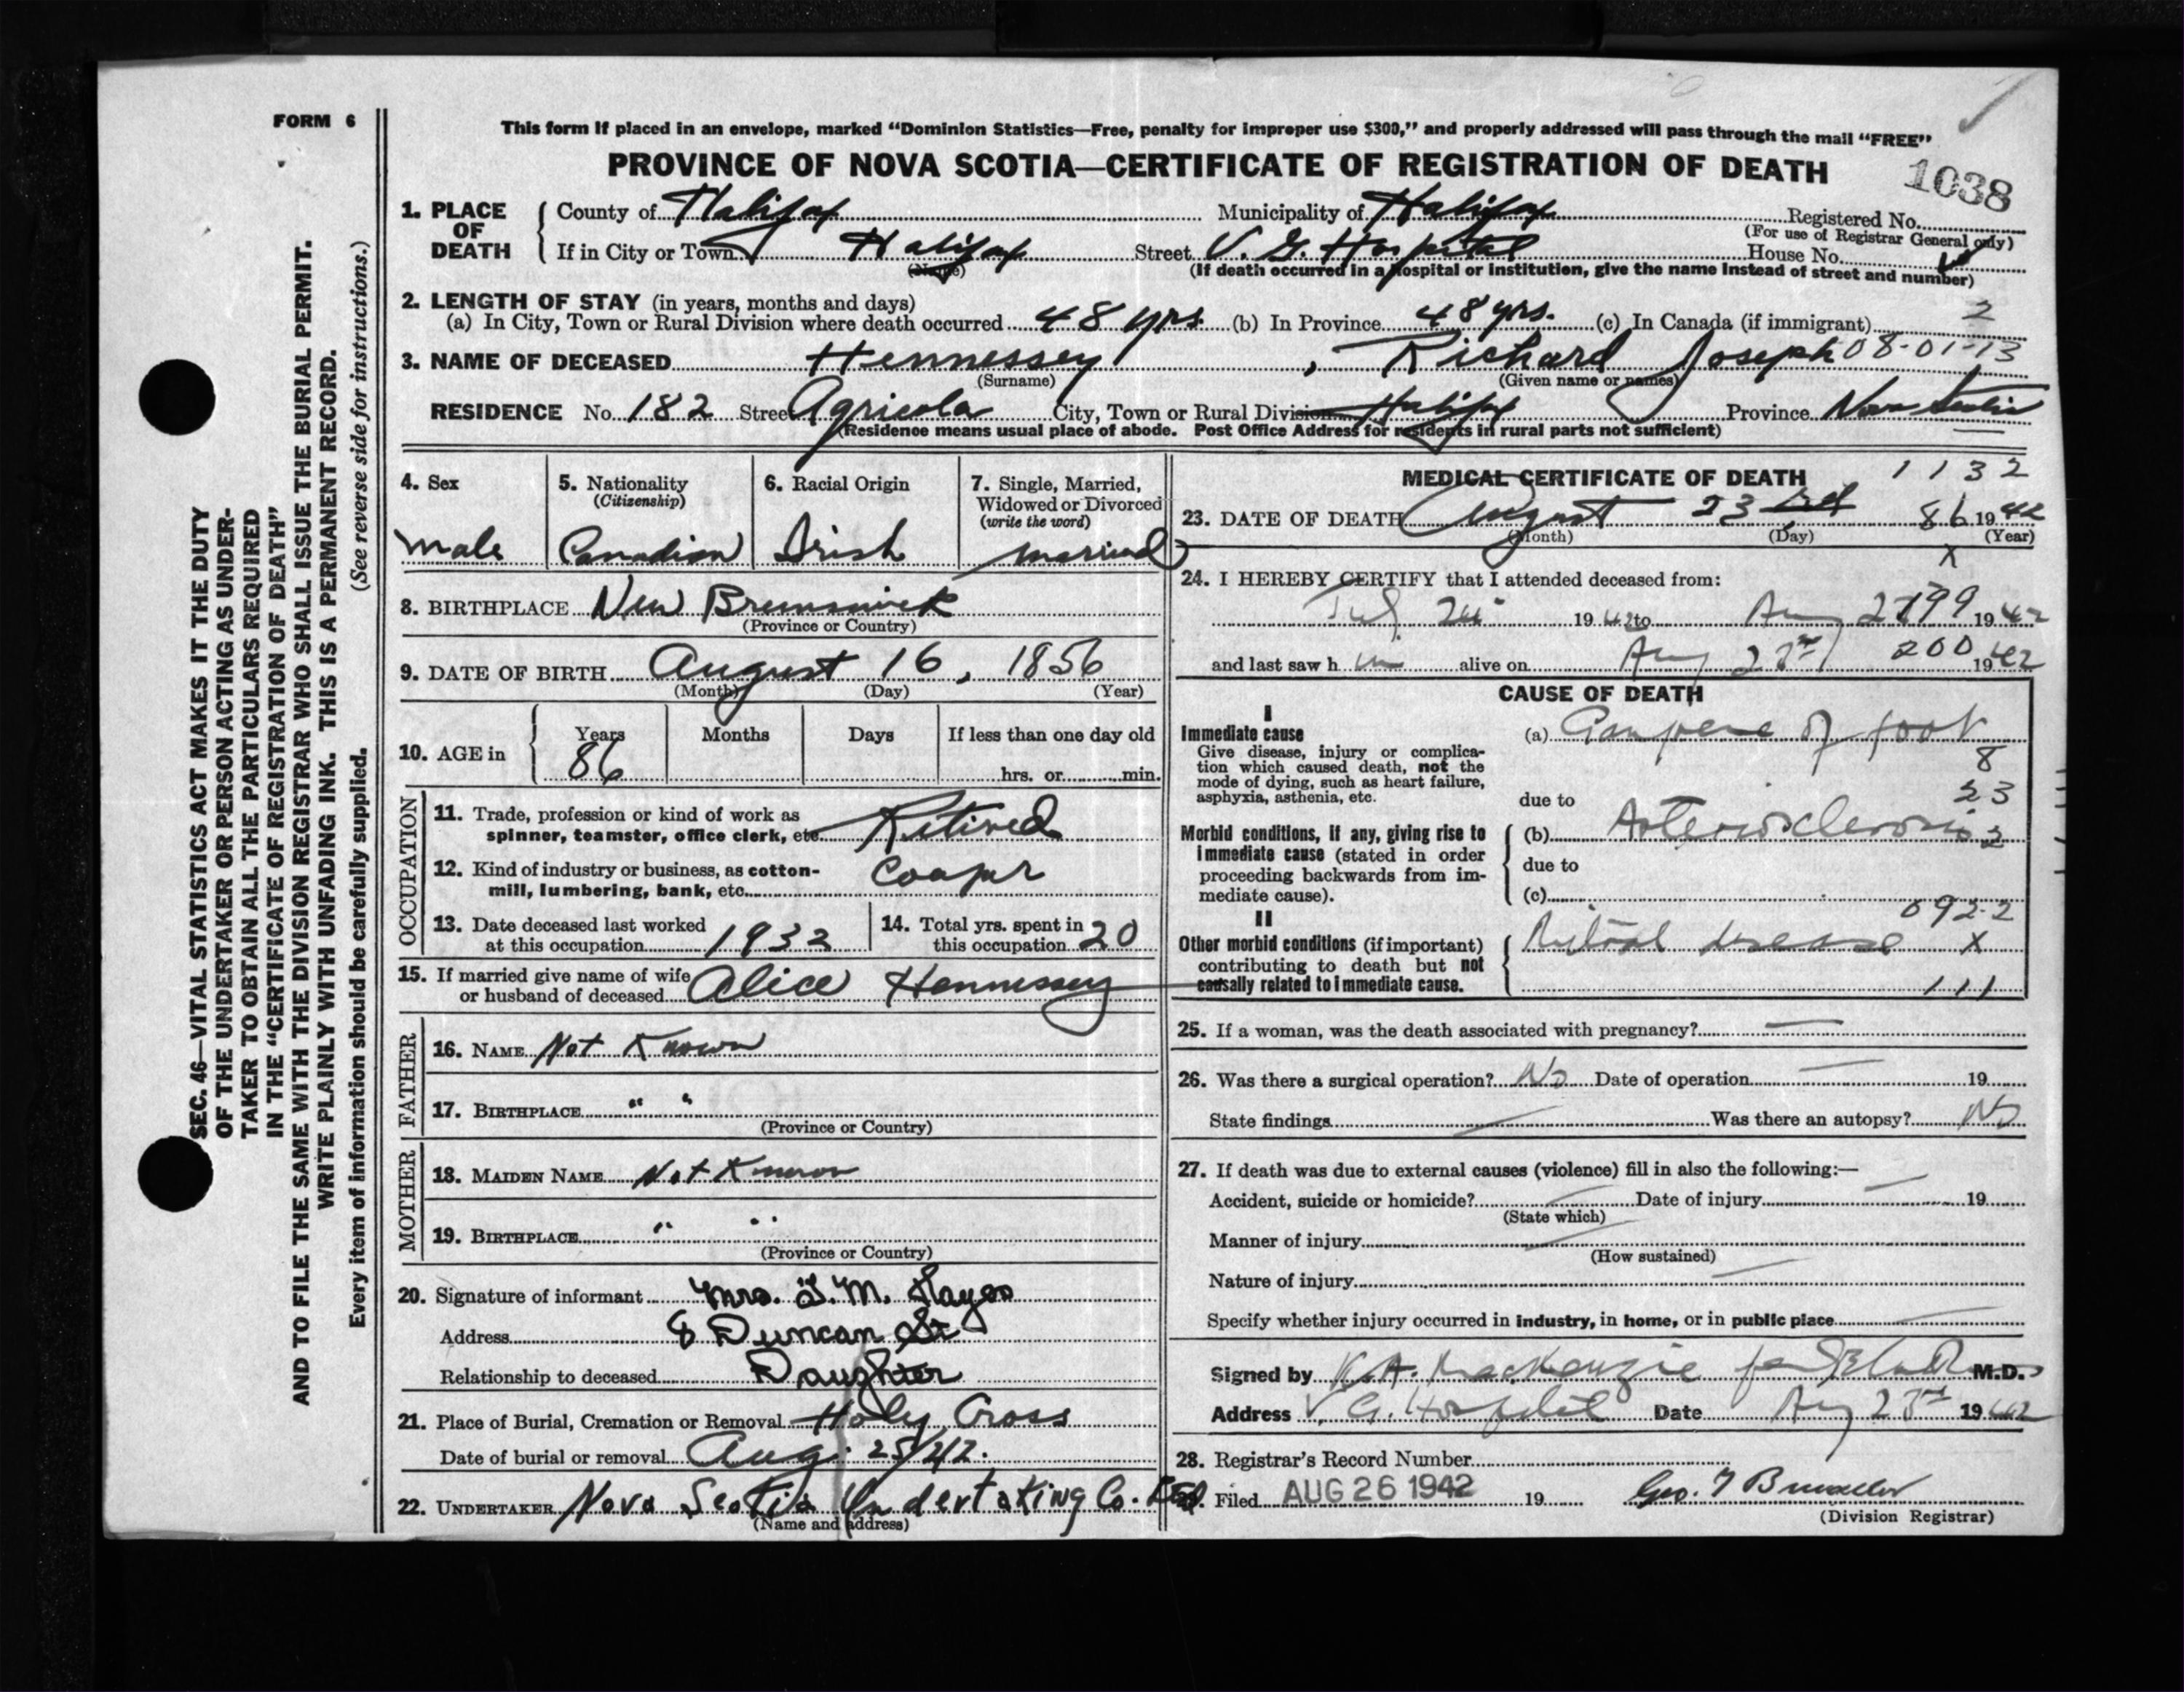 FORM 6
This form if placed in an envelope, marked "Dominion Statistics—Free, penalty for improper use $300," and properly addressed will pass through the mail "FREE"
PROVINCE OF NOVA SCOTIA—CERTIFICATE OF REGISTRATION OF DEATH
1038
1. PLACE OF DEATH County of Halifax Municipality of Halifax Registered No.
(For use of Registrar General only)
If in City or Town Halifax Street V. G. Hospital House No.
(Name) (If death occurred in a hospital or institution, give the name instead of street and number)
2. LENGTH OF STAY (in years, months and days)
(a) In City, Town or Rural Division where death occurred 48 yrs (b) In Province 48 yrs. (c) In Canada (if immigrant) 2
3. NAME OF DECEASED Hennessey, Richard Joseph 08-01-13
(Surname) (Given name or names)
RESIDENCE No. 182 Street Agricola City, Town or Rural Division Halifax Province Nova Scotia
(Residence means usual place of abode. Post Office Address for residents in rural parts not sufficient)
4. Sex
male
5. Nationality
(Citizenship)
Canadian
6. Racial Origin
Irish
7. Single, Married,
Widowed or Divorced
(write the word)
married
8. BIRTHPLACE New Brunswick
(Province or Country)
9. DATE OF BIRTH August 16, 1856
(Month) (Day) (Year)
10. AGE in Years Months Days If less than one day old
86 hrs. or min.
OCCUPATION
11. Trade, profession or kind of work as
spinner, teamster, office clerk, etc. Retired
12. Kind of industry or business, as cotton-
mill, lumbering, bank, etc. Cooper
13. Date deceased last worked
at this occupation 1932
14. Total yrs. spent in
this occupation 20
15. If married give name of wife
or husband of deceased Alice Hennessey
FATHER
16. NAME Not Known
17. BIRTHPLACE " "
(Province or Country)
MOTHER
18. MAIDEN NAME Not Known
19. BIRTHPLACE " "
(Province or Country)
20. Signature of informant Mrs. J. M. Hayes
Address 8 Duncan St
Relationship to deceased Daughter
21. Place of Burial, Cremation or Removal Holy Cross
Date of burial or removal Aug. 25/42.
22. UNDERTAKER Nova Scotia Undertaking Co.
(Name and address)
MEDICAL CERTIFICATE OF DEATH 1132
23. DATE OF DEATH August 23rd 86 1942
(Month) (Day) (Year)
X
24. I HEREBY CERTIFY that I attended deceased from:
1942 to Aug 199 1942
and last saw h im alive on Aug 23rd 200 1942
CAUSE OF DEATH
I
Immediate cause
Give disease, injury or complica-
tion which caused death, not the
mode of dying, such as heart failure,
asphyxia, asthenia, etc.
(a) Gangrene of foot
8
due to 23
Morbid conditions, if any, giving rise to
immediate cause (stated in order
proceeding backwards from im-
mediate cause).
(b) Arteriosclerosis 2
due to
(c)
0922
II
Other morbid conditions (if important)
contributing to death but not
causally related to immediate cause.
Mitral disease X
111
25. If a woman, was the death associated with pregnancy? —
26. Was there a surgical operation? No Date of operation — 19
State findings — Was there an autopsy? No
27. If death was due to external causes (violence) fill in also the following:—
Accident, suicide or homicide? — Date of injury — 19
(State which)
Manner of injury —
(How sustained)
Nature of injury —
Specify whether injury occurred in industry, in home, or in public place —
Signed by K. A. MacKenzie M.D.
Address V. G. Hospital Date Aug 23rd 1942
28. Registrar's Record Number
Filed AUG 26 1942 19
(Division Registrar)
SEC. 46—VITAL STATISTICS ACT MAKES IT THE DUTY
OF THE UNDERTAKER OR PERSON ACTING AS UNDER-
TAKER TO OBTAIN ALL THE PARTICULARS REQUIRED
IN THE "CERTIFICATE OF REGISTRATION OF DEATH"
AND TO FILE THE SAME WITH THE DIVISION REGISTRAR WHO SHALL ISSUE THE BURIAL PERMIT.
WRITE PLAINLY WITH UNFADING INK. THIS IS A PERMANENT RECORD.
Every item of information should be carefully supplied. (See reverse side for instructions.)